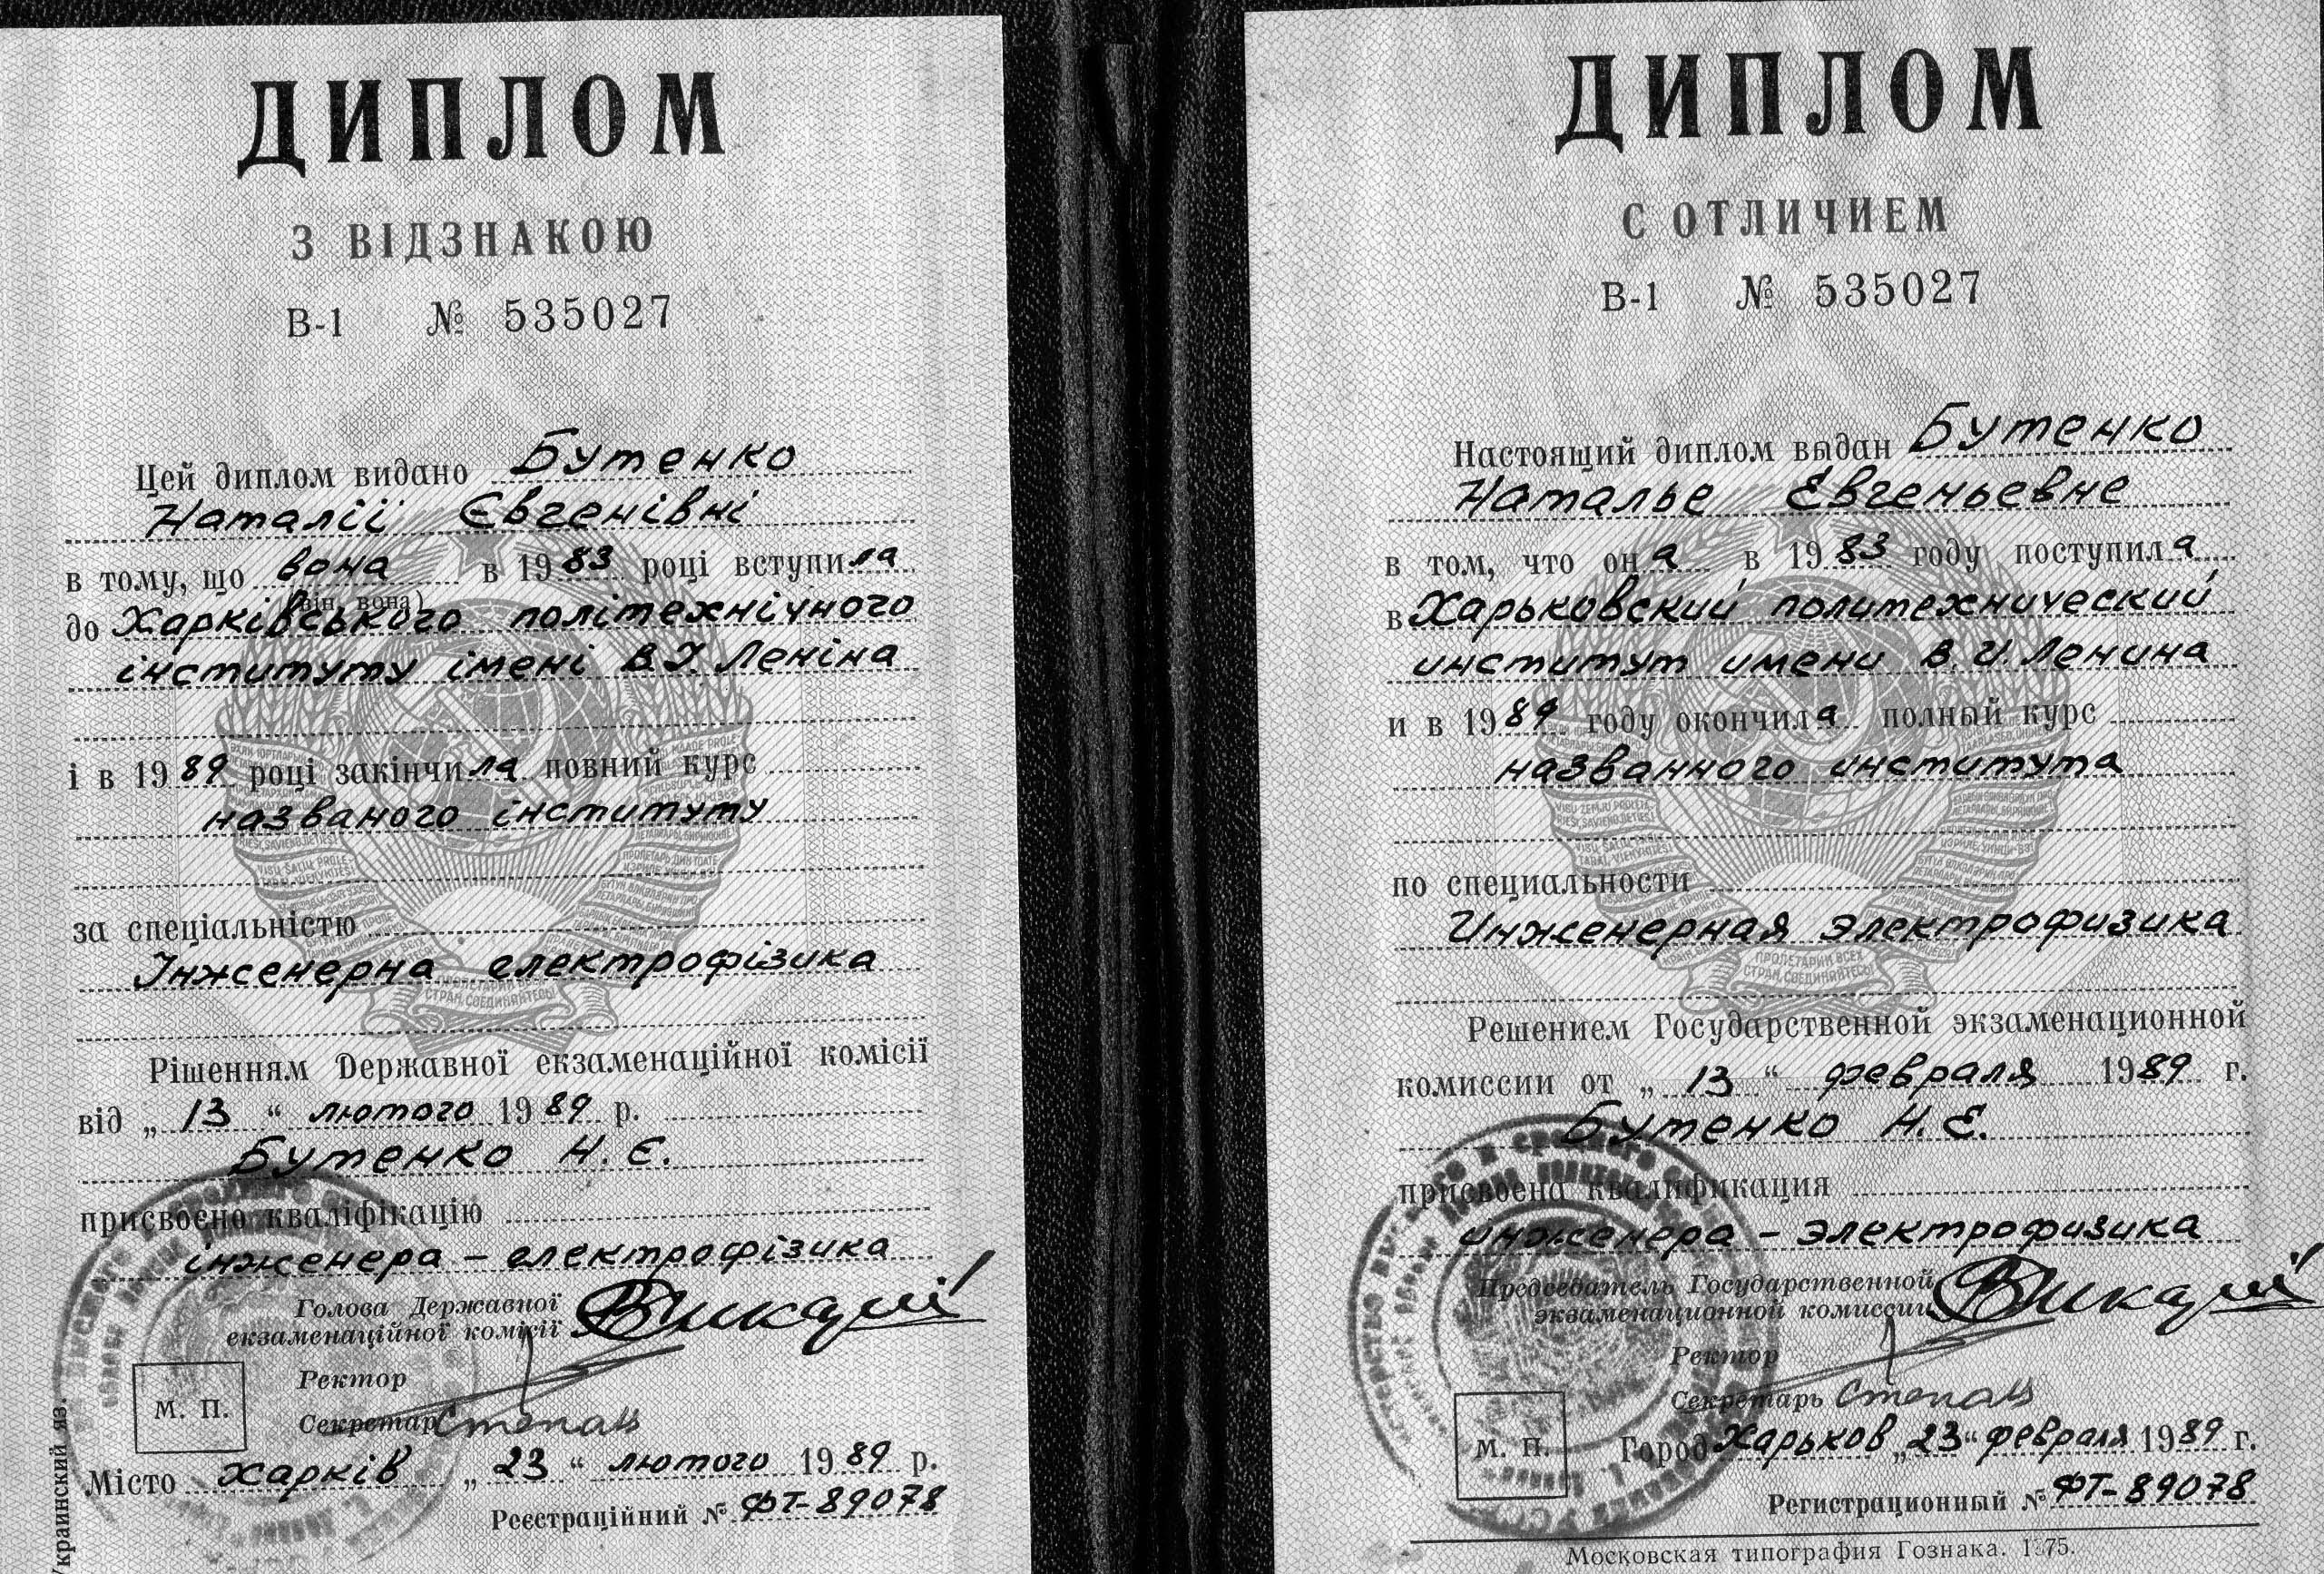 ДИПЛОМ
З ВІДЗНАКОЮ
В-1 № 535027
Цей диплом видано Бутенко
Наталії Євгенівні
в тому, що вона в 1983 році вступила
(він, вона)
до Харківського політехнічного
інституту імені В.І. Леніна
і в 1989 році закінчила повний курс
названого інституту
за спеціальністю
Інженерна електрофізика
Рішенням Державної екзаменаційної комісії
від „13“ лютого 1989 р.
Бутенко Н. Є.
присвоєно кваліфікацію
інженера – електрофізика
Голова Державної
екзаменаційної комісії
Ректор
Секретар
М. П.
Місто Харків „23“ лютого 1989 р.
Реєстраційний № ФТ-89078
Украинский яз.
ПРОЛЕТАРИИ ВСЕХ
СТРАН, СОЕДИНЯЙТЕСЬ!
ДИПЛОМ
С ОТЛИЧИЕМ
В-1 № 535027
Настоящий диплом выдан Бутенко
Наталье Евгеньевне
в том, что она в 1983 году поступила
в Харьковский политехнический
институт имени В. И. Ленина
и в 1989 году окончила полный курс
названного института
по специальности
Инженерная электрофизика
ПРОЛЕТАРИИ ВСЕХ
СТРАН, СОЕДИНЯЙТЕСЬ!
Решением Государственной экзаменационной
комиссии от „13“ февраля 1989 г.
Бутенко Н. Е.
присвоена квалификация
инженера – электрофизика
Председатель Государственной
экзаменационной комиссии
Ректор
Секретарь
М. П.
Город Харьков „23“ февраля 1989 г.
Регистрационный № ФТ-89078
Московская типография Гознака. 1975.